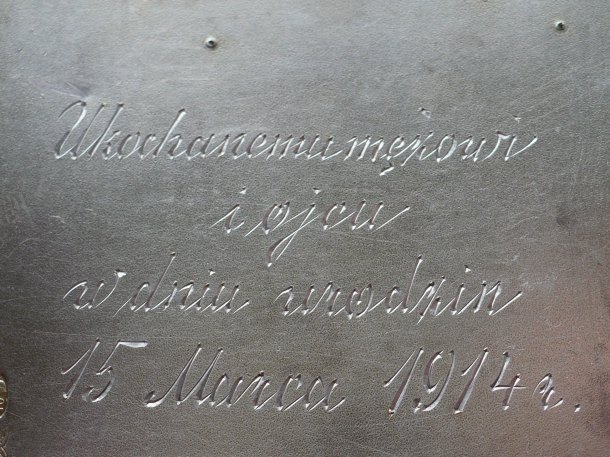 Ukochanemu mężowi
i ojcu
w dniu urodzin
15 Marca 1914 r.